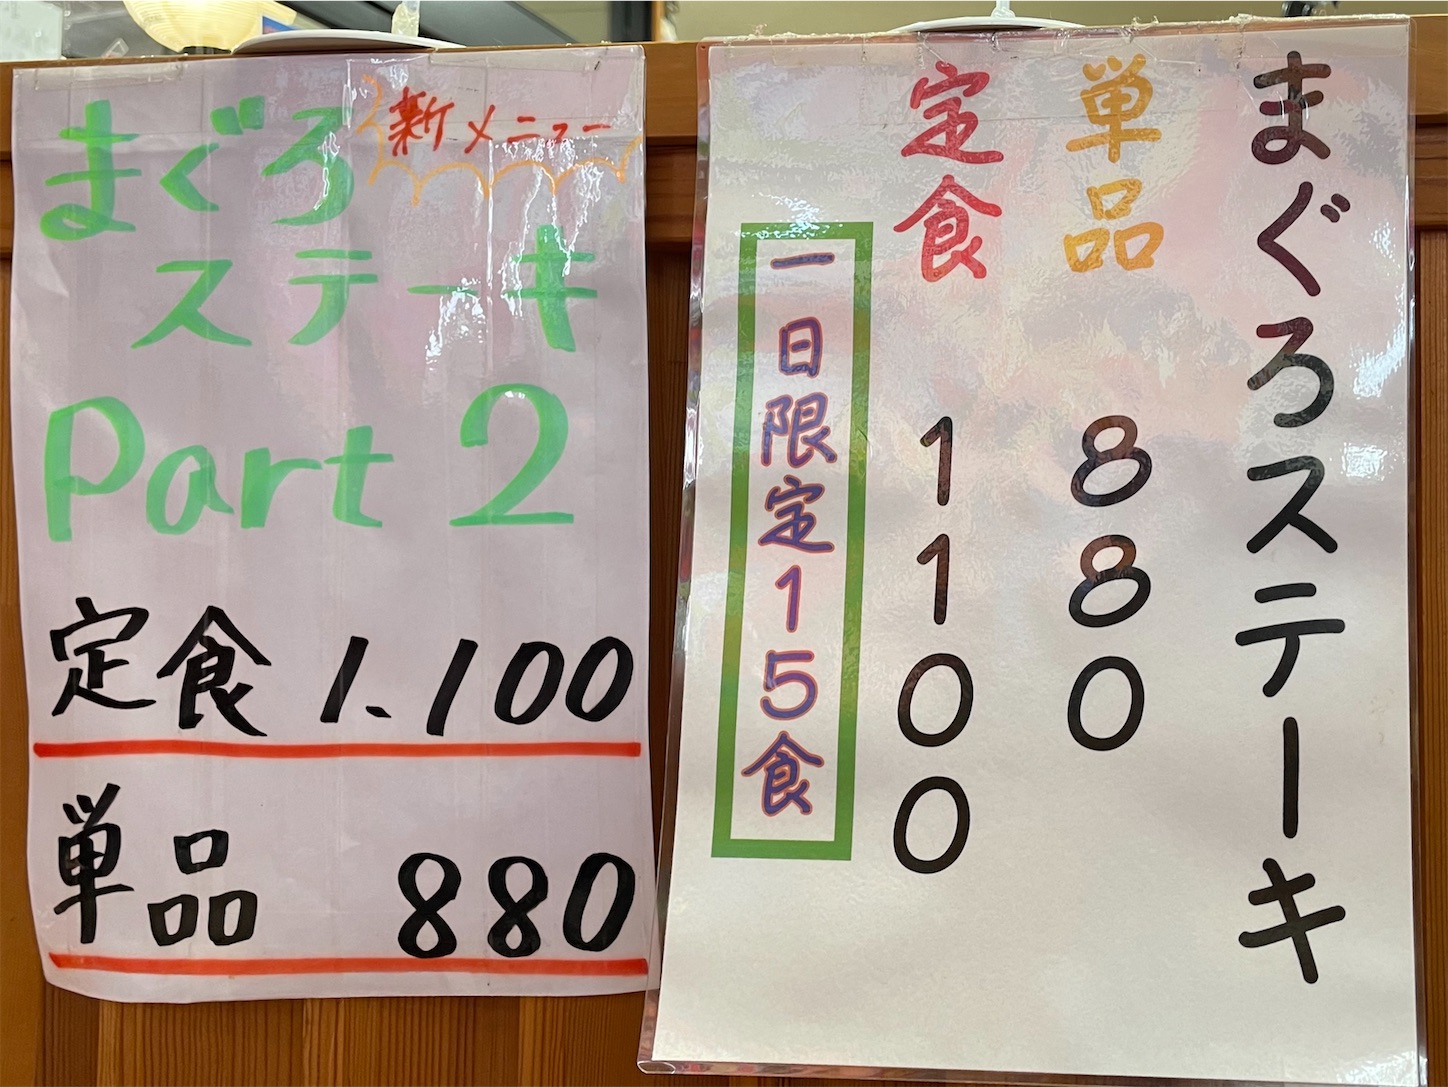 まぐろ
新メニュー
ステーキ
Part 2
定食 1.100
単品 880
まぐろステーキ
単品 880
定食 1100
一日限定15食